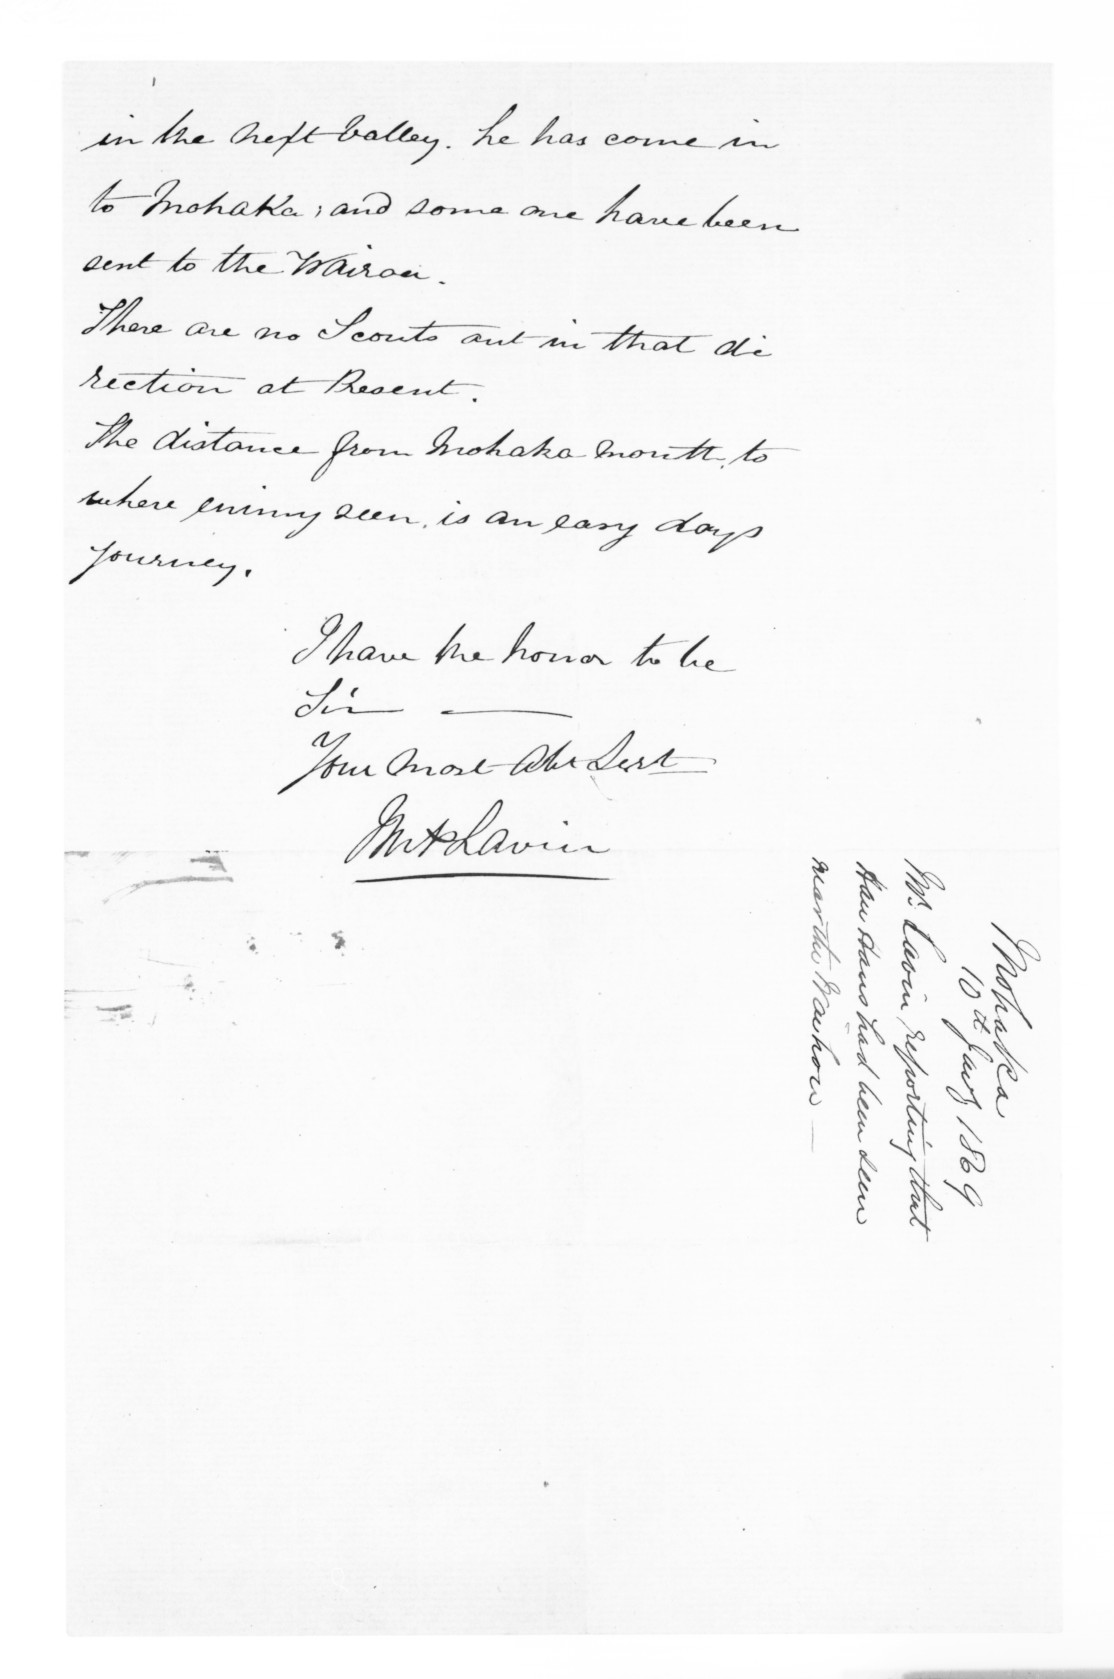 in the next valley. he has come in
to Mohaka; and some one have been
sent to the Wairoa.
There are no Scouts out in that di
rection at Present.
The distance from Mohaka mouth, to
where enimy seen, is an easy days
Journey.
I have the honor to be
Sir —
Your most Obt Servt
Lavin
Mohaka
10th Jany 1869
Mr. Lavin reporting that
Hau Haus had been seen
near the